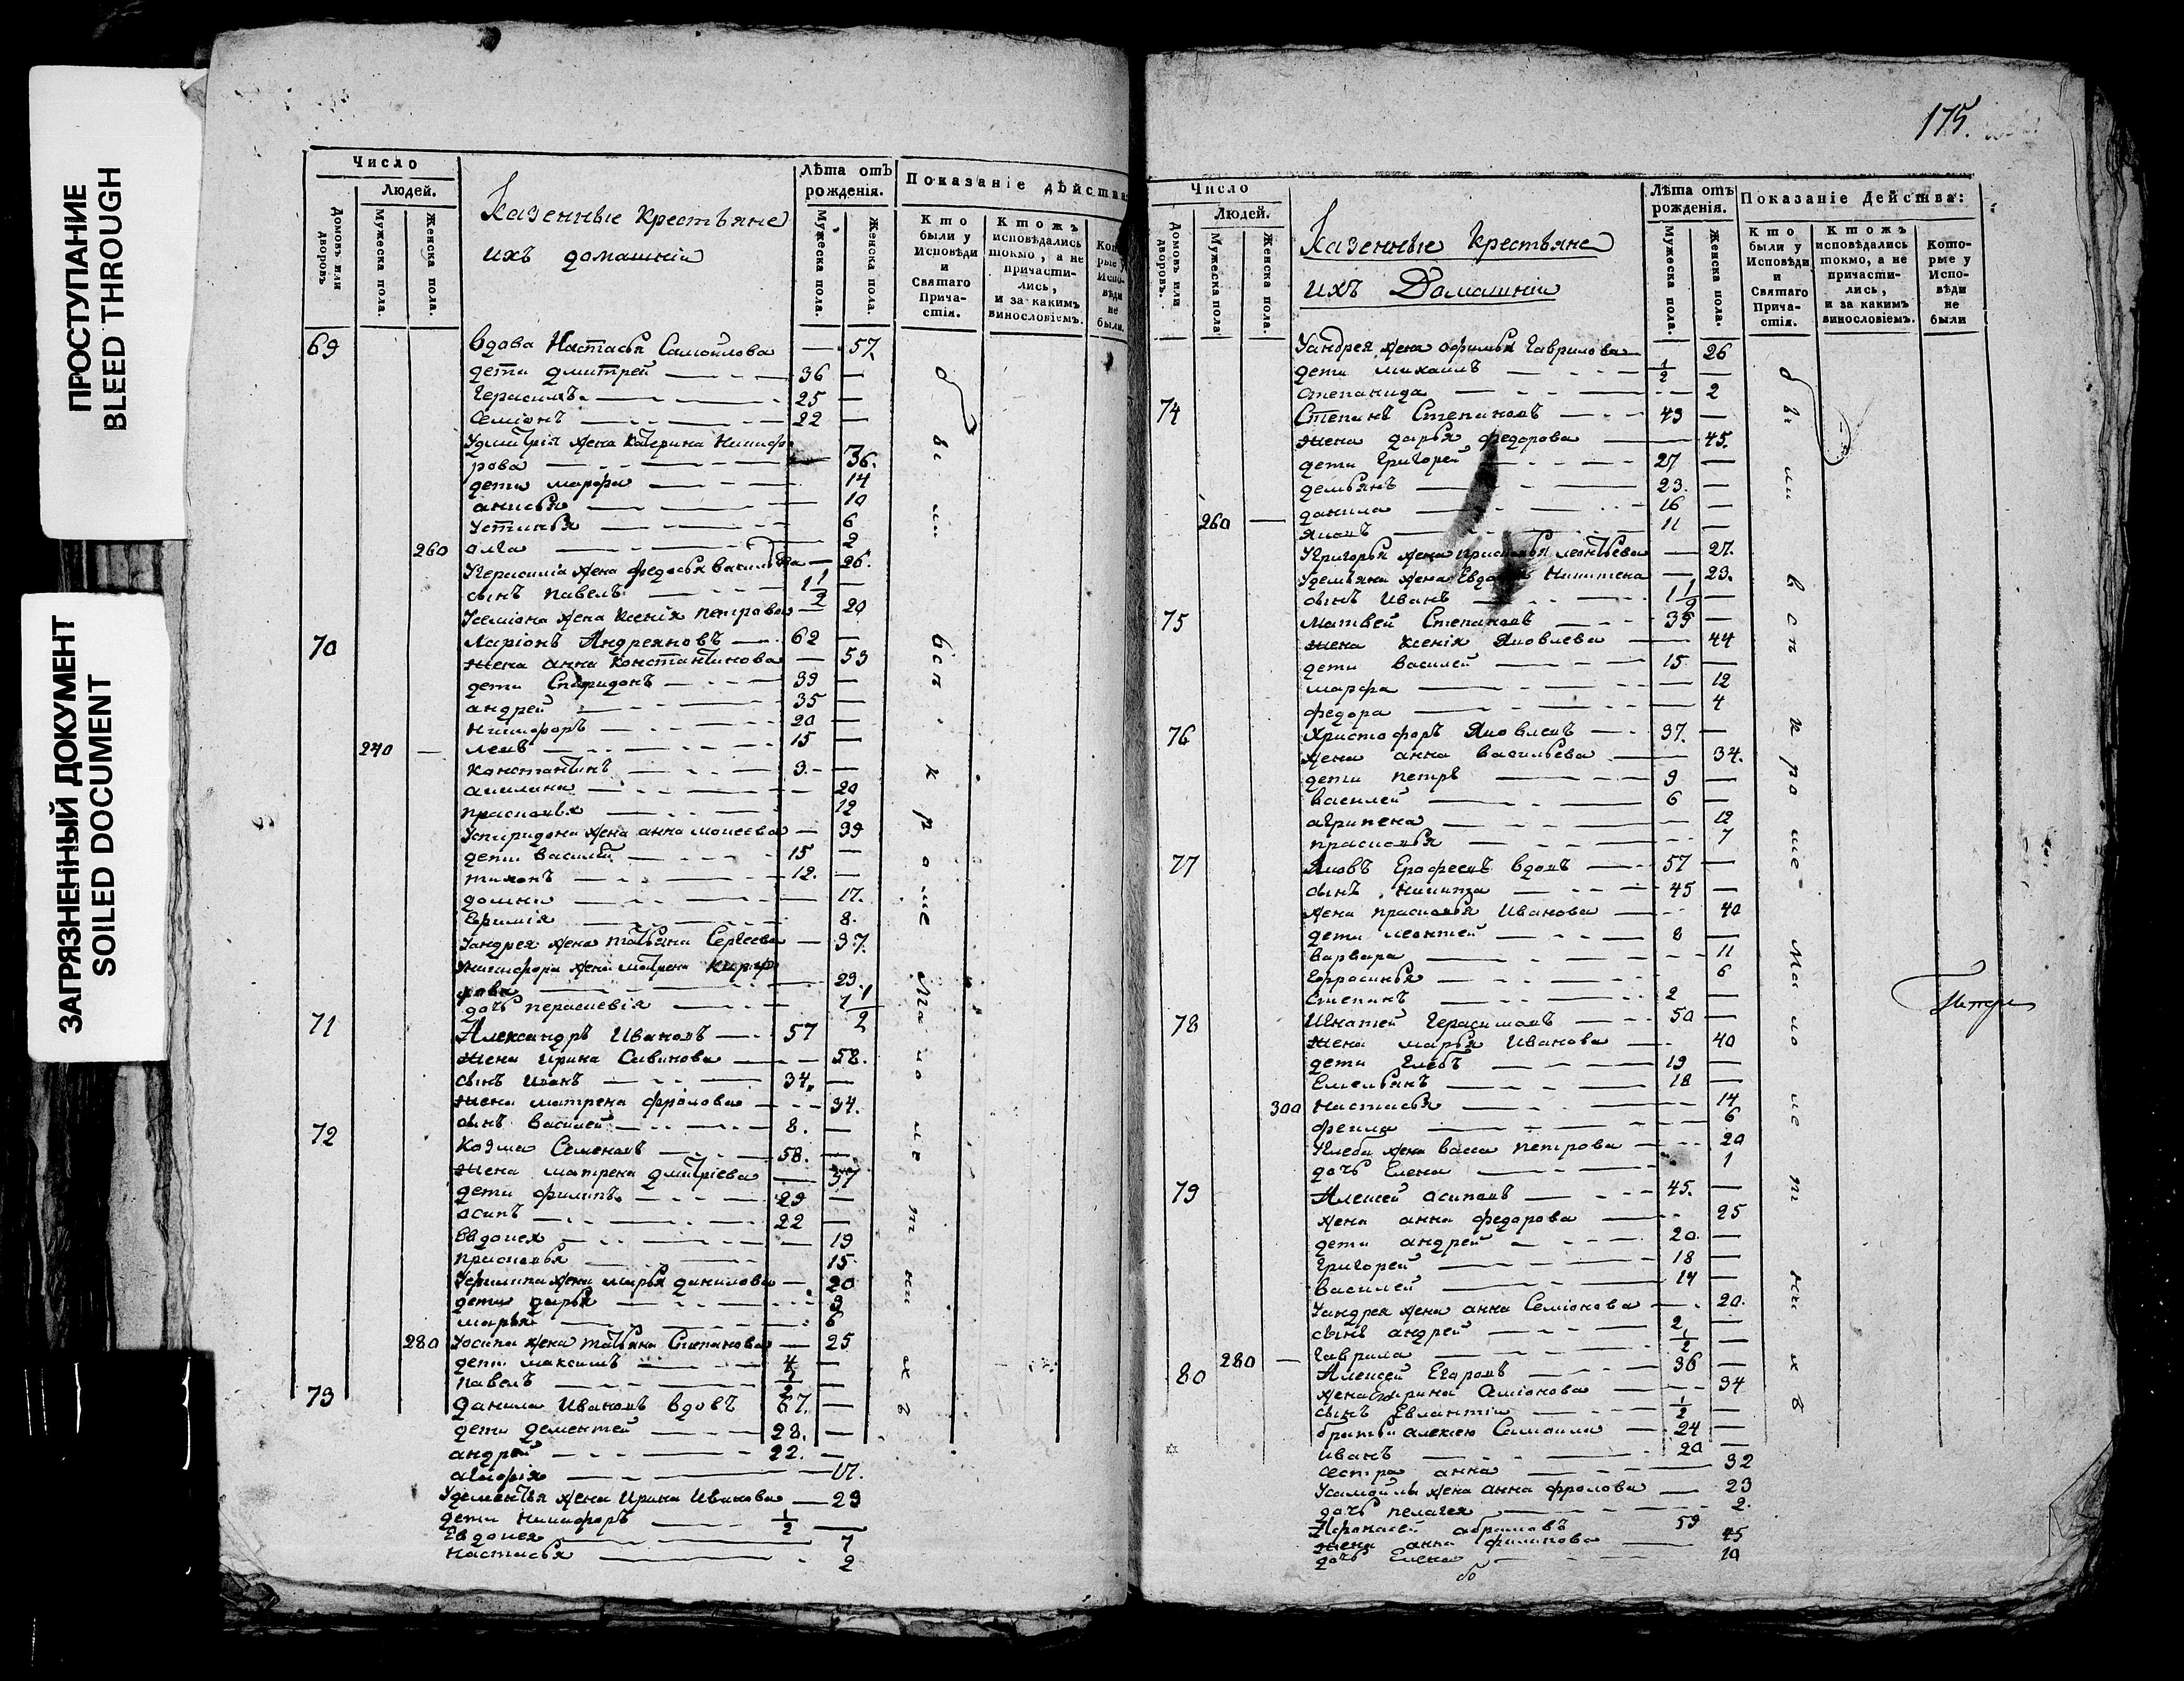 ПРОСТУПАНИЕ
BLEED THROUGH
ЗАГРЯЗНЕННЫЙ ДОКУМЕНТ
SOILED DOCUMENT
Число
Людей.
Домовъ или дворовъ.
Мужеска пола.
Женска пола.
Казенные крестьяне
ихъ домашнiи
Лѣта отъ рожденiя.
Мужеска пола.
Женска пола.
Показанiе дѣйства
Кто были у Исповѣди и Святаго Причастiя.
Ктожъ исповѣдались токмо, а не причастились, и за какимъ винословiемъ.
Которые у Исповѣди не были.
69 вдова Настасья Самойлова — 57.
дети дмитрей — 36 —
Герасимъ — 25 —
Семiонъ — 22 —
Удмитрiя жена Катерина Никифо
рова — 36.
дети марфа — 14
анисья — 10
Устинья — 6
260 олга — 2
Угерасима жена федосья васильева — 26.
сынъ павелъ — 1 1/2
Усемiона жена Ксенiя петрова — 20
70 Ларiонъ Андреяновъ — 62 —
жена анна константинова — 53
дети Спиридонъ — 39 —
андрей — 35 —
никифоръ — 20 —
240 — левъ — 15 —
константинъ — 9. —
акилина — 20
прасковья — 12
Успиридона жена анна моисеева — 39
дети василiй — 15 —
тихонъ — 12. —
домна — 17.
Ефимiя — 8.
Уандрея жена татьяна Сергеева — 37.
Уникифора жена матрена
— 29.
дочь парасκевiя — 1 1/2
71 Александръ Ивановъ — 57
жена ирина Савинова — 58.
сынъ иванъ — 34 —
жена матрена фролова — 34.
сынъ василей — 8. —
72 Козма Семеновъ — 58. —
жена матрена дмитрiева — 57
дети филипъ — 29 —
осипъ — 22 —
Евдокея — 19
прасковья — 15.
Уфилипа жена марья данилова — 20
дети дарья — 9
марья — 6
280 Уосипа жена татьяна Степанова — 25
дети максимъ — 4 —
павелъ — 1/2 —
73 данила Ивановъ вдовъ 67. —
дети дементей — 28. —
андрей — 22. —
агафiя — 17.
Удементья жена Ирина Иванова — 29
дети никифоръ — 1/2 —
Евдокея — 7
настасья — 2
обыи вси кроме малолетних
175.
Число
Людей.
Домовъ или дворовъ.
Мужеска пола
Женска пола.
Казенные Крестьяне
ихъ Домашнiи
Лѣта отъ рожденiя.
Мужеска пола.
Женска пола.
Показанiе Действа:
Кто были у Исповѣди и Святаго Причастiя.
Ктожъ исповѣдались токмо, а не причастились, и за какимъ винословiемъ.
Которые у Исповѣди не были
Уандрея жена офимья Гаврилова — 26
дети михаилъ — 1/2 —
степанида — 2
74 Степанъ Степановъ — 49 —
жена дарья федорова — 45.
дети Григорей — 27 —
демьянъ — 23. —
данила — 16 —
260 — яковъ — 11 —
Угригорья жена прасковья леонтьева — 27.
Удемьяна жена Евдокея Никитена — 23.
сынъ Иванъ — 1 1/2 —
75 Матвей Степановъ — 39 —
жена ксенiя Яковлева — 44
дети василей — 15 —
марфа — 12
федора — 4
76 Христофоръ Яковлевъ — 37. —
жена анна васильева — 34.
дети петръ — 9 —
василей — 6 —
агрипена — 12
прасковья — 7
77 Яковъ Ерофеевъ вдовъ — 57 —
сынъ никита — 45 —
жена прасковья Иванова — 40
дети леонтей — 8 —
варвара — 11
Ефросинья — 6
Степанъ — 2 —
78 Игнатей Герасимовъ — 50 —
жена марья Иванова — 40
дети глебъ — 19 —
Емельянъ — 18 —
300 настасья — 14
фекла — 6
Углеба жена васса петрова — 20
дочь Елена — 1
79 Алексей осиповъ — 45. —
жена анна федорова — 25
дети андрей — 20 —
Григорей — 18 —
василей — 14 —
Уандрея жена анна Семiонова — 20.
сынъ андрей — 2 —
гаврила — 1/2 —
80 280 — Алексей Егоровъ — 36 —
жена ирина Семiонова — 34
сынъ Евлантiи — 1/2 —
братьи алексею Самоила — 24 —
иванъ — 20 —
сестра анна — 32
Усамойлы жена анна фролова — 23
дочь пелагея — 2.
Афонасей абрамовъ 59
жена анна филипова — 45
дочь Елена — 10
обыи вси кроме малолетнихъ